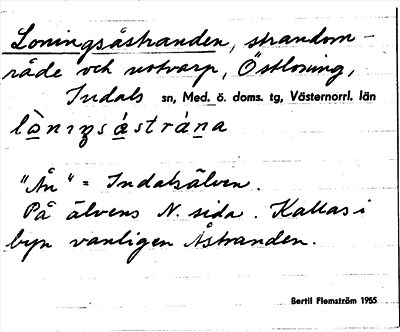 Loningsåstranden, strandom-
råde och notvarp, Östloning,
Indals sn, Med. ö. doms. tg, Västernorrl. län
lònıŋsástràna
"Ån" = Indalsälven.
På älvens N. sida. Kallas i
byn vanligen Åstranden.
Bertil Flemström 1955